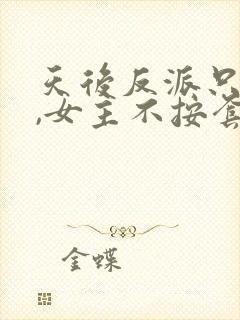 天後反派只
,女主不按套
金蝶